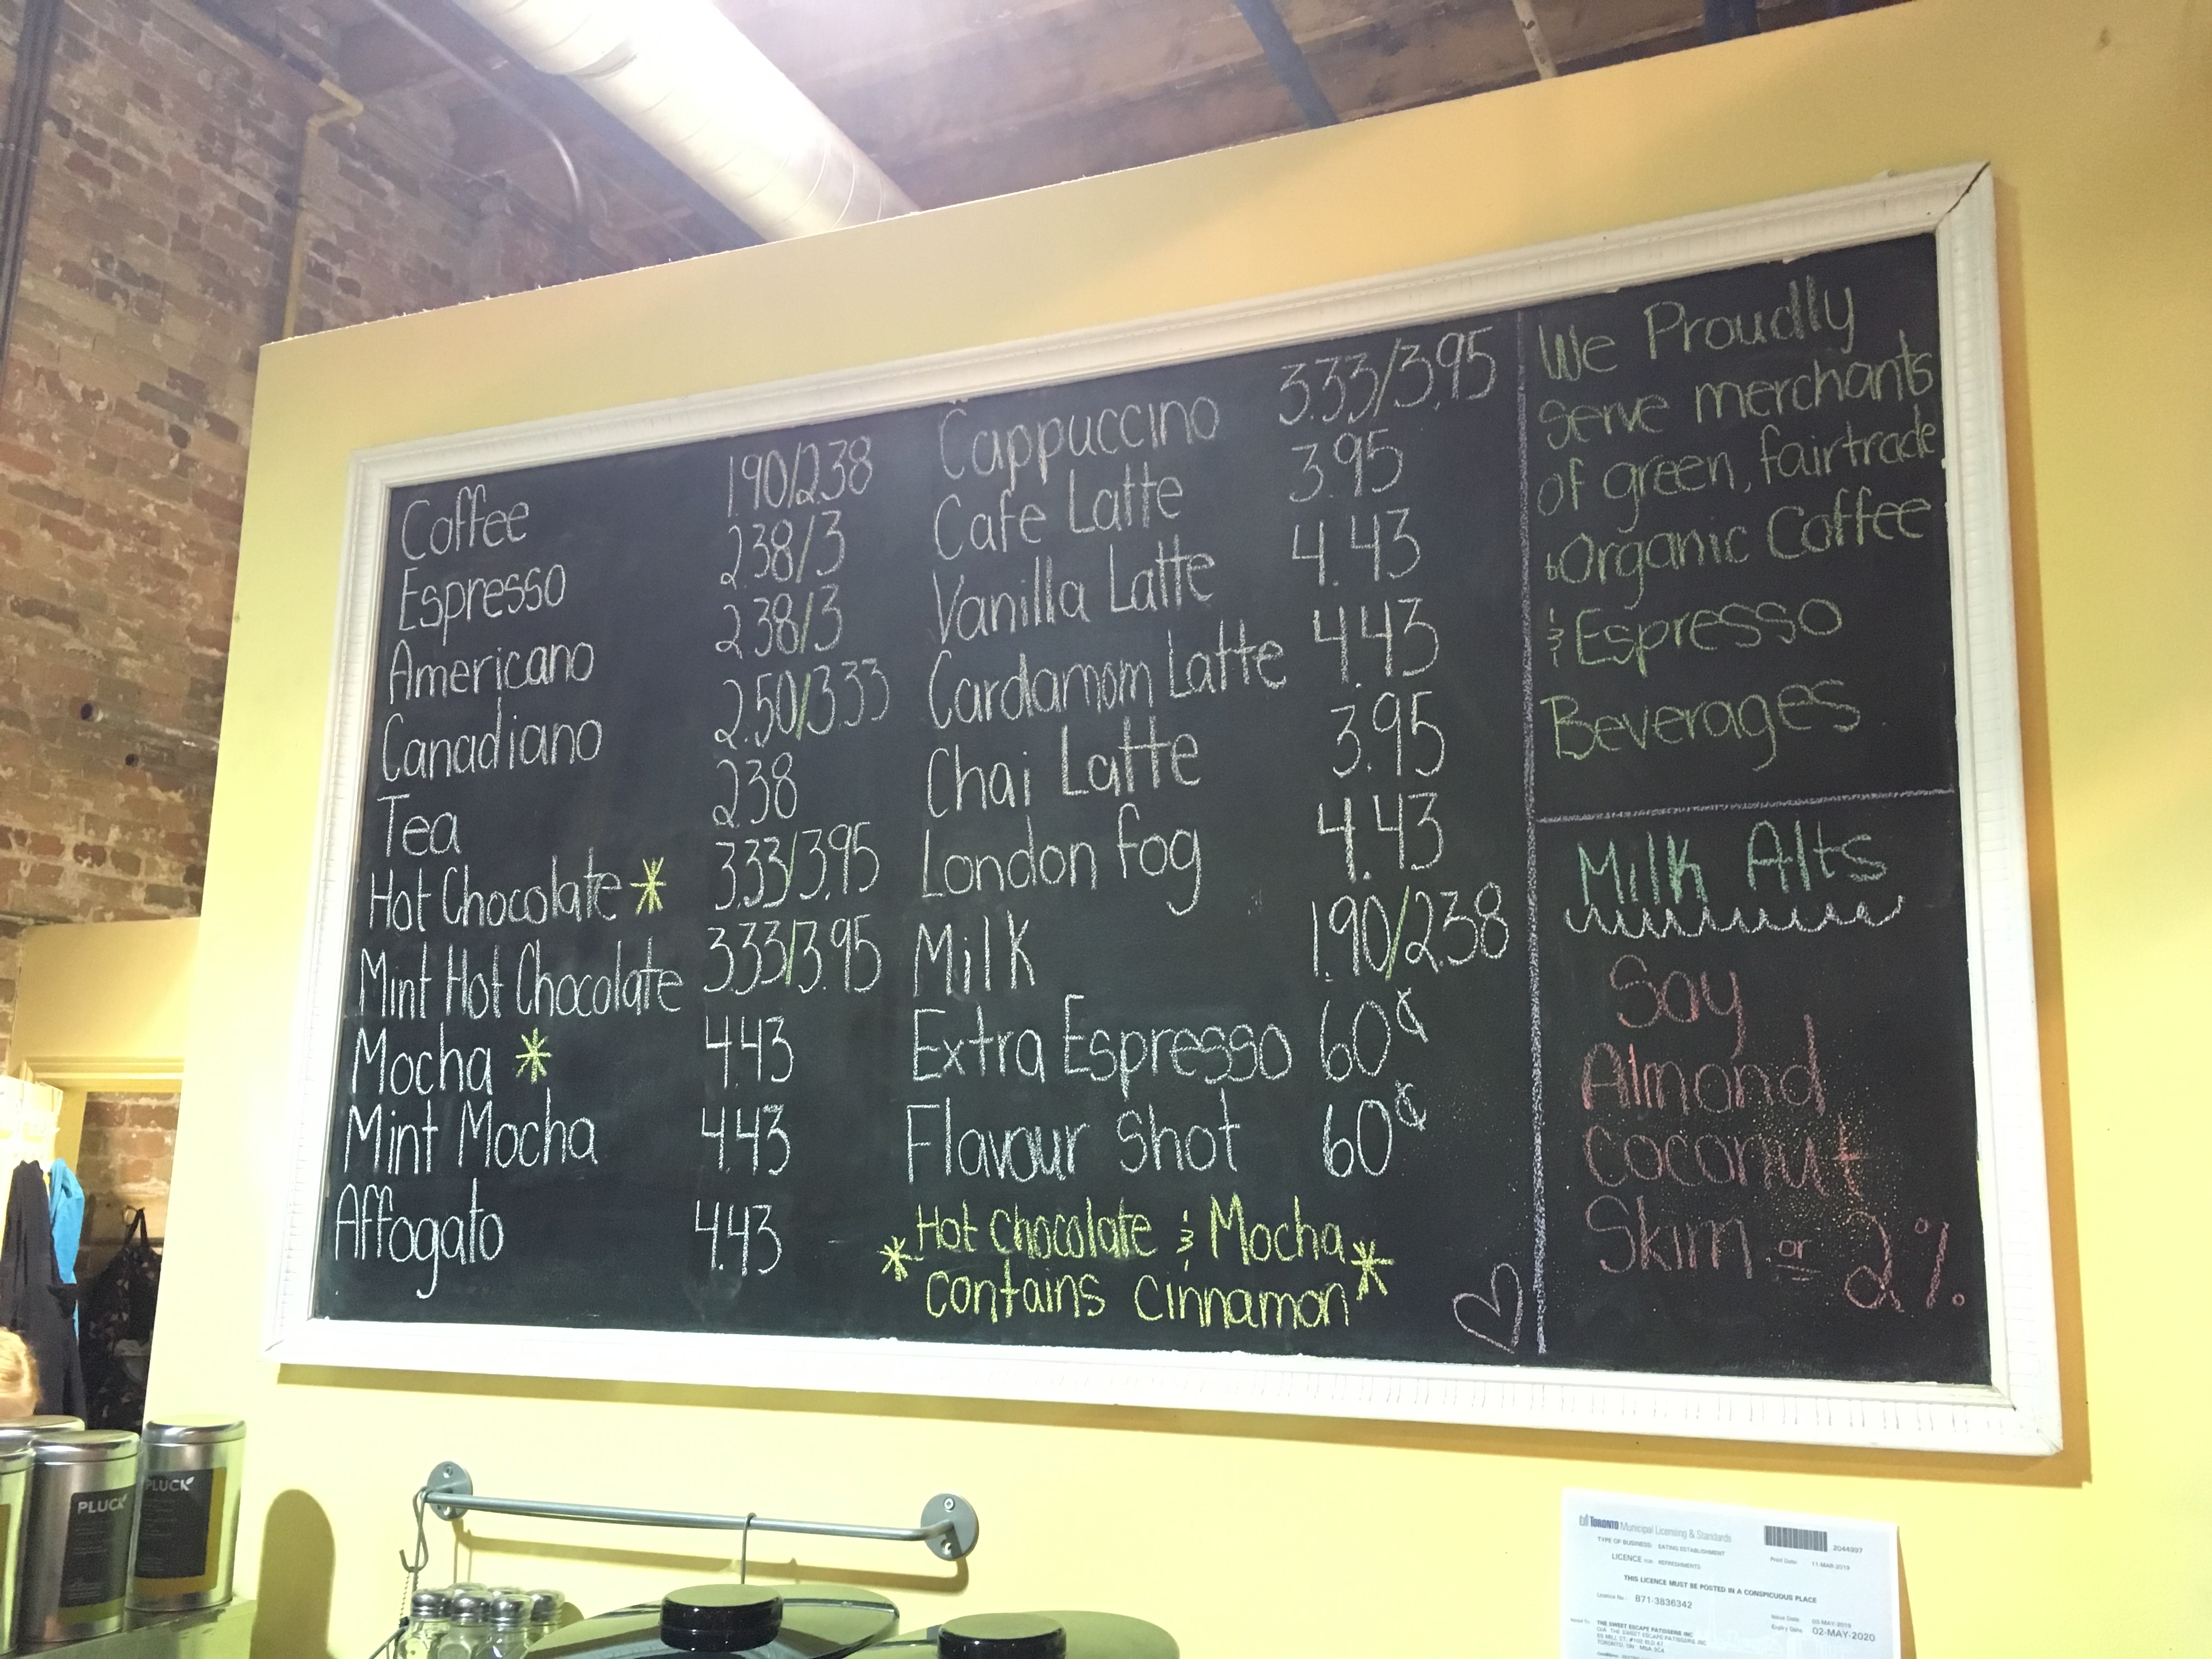 Coffee 1.90/2.38
Espresso 2.38/3
Americano 2.38/3
Canadiano 2.50/3.33
Tea 2.38
Hot Chocolate * 3.33/3.95
Mint Hot Chocolate 3.33/3.95
Mocha * 4.43
Mint Mocha 4.43
Affogato 4.43
Cappuccino 3.33/3.95
Cafe Latte 3.95
Vanilla Latte 4.43
Cardamom Latte 4.43
Chai Latte 3.95
London Fog 4.43
Milk 1.90/2.38
Extra Espresso 60¢
Flavour Shot 60¢
* Hot Chocolate & Mocha *
contains Cinnamon
We Proudly
serve merchants
of green, fairtrade
Organic Coffee
& Espresso
Beverages
Milk Alts
Soy
Almond
Coconut
Skim or 2%
PLUCK
PLUCK
TORONTO Municipal Licensing & Standards
2044997
TYPE OF BUSINESS: EATING ESTABLISHMENT
Print Date: 11-MAR-2019
LICENCE FOR REFRESHMENTS
THIS LICENCE MUST BE POSTED IN A CONSPICUOUS PLACE
Licence No.: B71-3836342
Issue Date: 03-MAY-2019
Expiry Date: 02-MAY-2020
Issued To: THE SWEET ESCAPE PATISSERIE INC
O/A THE SWEET ESCAPE PATISSERIE INC
TORONTO, ON M5A 3C4